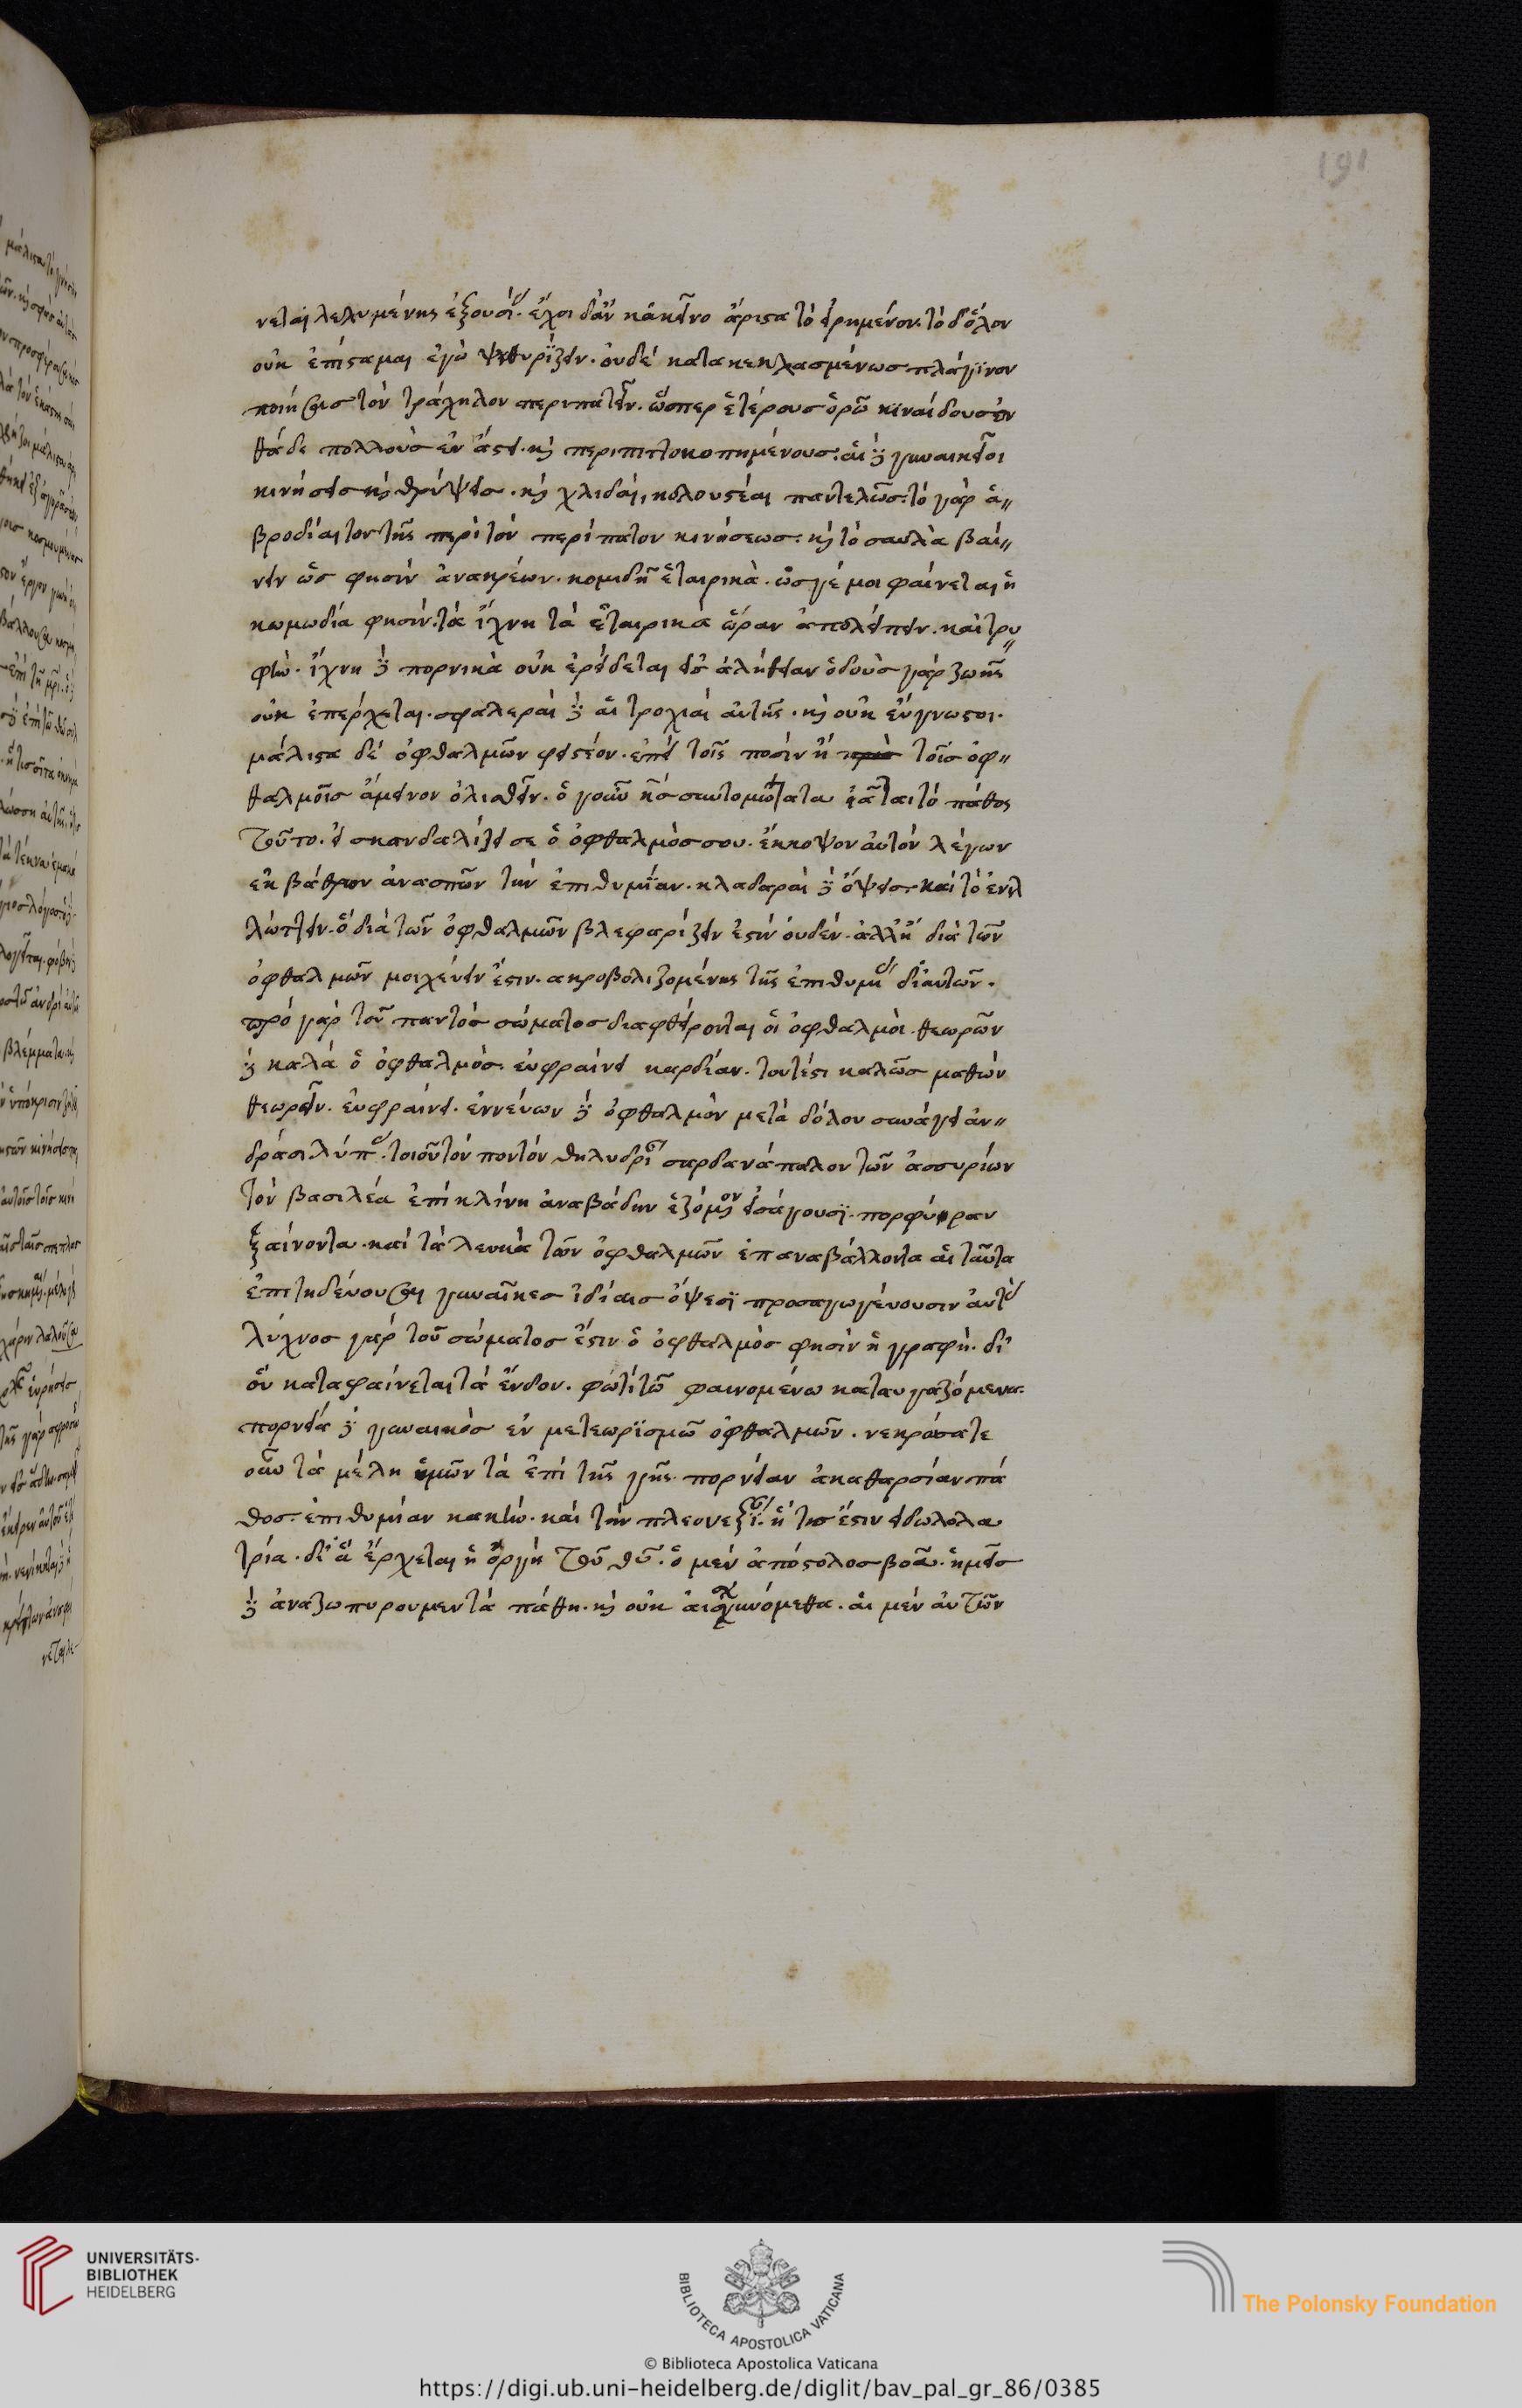 191
νεται λελυμένης ἐξουσίας. ἔχοι δ' ἂν κἀκεῖνο ἄριστα τὸ εἰρημένον. τὸ δ' ὅλον
οὐκ ἐπίσταμαι ἐγὼ ψιθυρίζειν. οὐδὲ κατακεκλασμένως πλάγϊνον
ποιήσας τὸν τράχηλον περιπατεῖν. ὥσπερ ἑτέρους ὁρῶ κιναίδους ἐν
θάδε πολλοὺς ἐν ἄστει. καὶ περιπιττοκοπημένους. αἱ δὲ γυναικεῖοι
κινήσεις καὶ θρύψεις. καὶ χλιδαὶ, κολουστέαι παντελῶς. τὸ γὰρ ἁ
βροδίαιτον τῆς περὶ τὸν περίπατον κινήσεως. καὶ τὸ σαυλὰ βαί
νειν ὥς φησιν ἀνακρέων. κομιδῆ ἑταιρικὰ. ὥς γέ μοι φαίνεται ἡ
κωμωδία φησίν. τὰ ἴχνη τὰ ἑταιρικὰ ὥραν ἀπολείπειν. καὶ τρυ
φὴν. ἴχνη δὲ πορνικὰ οὐκ ἐρείδεται εἰς ἀλήθειαν ὁδοὺς γὰρ ζωῆς
οὐκ ἐπέρχεται. σφαλεραὶ δὲ αἱ τροχιαὶ αὐτῆς. καὶ οὐκ εὔγνωστοι.
μάλιστα δὲ ὀφθαλμῶν φειστέον. ἐπεὶ τοῖς ποσὶν ἢ τοῖς ὀφ
θαλμοῖς ἄμεινον ὀλισθεῖν. ὁ γοῦν κύριος συντομώτατα ἰᾶται τὸ πάθος
τοῦτο. εἰ σκανδαλίζει σε ὁ ὀφθαλμός σου. ἔκκοψον αὐτὸν λέγων
ἐκ βάθρων ἀνασπῶν τὴν ἐπιθυμίαν. κλαδαραὶ δὲ ὄψεις. καὶ τὸ ἐνιλ
λώπτειν. ὃ διὰ τῶν ὀφθαλμῶν βλεφαρίζειν ἐστὶν οὐδέν. ἀλλ' ἢ διὰ τῶν
ὀφθαλμῶν μοιχεύειν ἔστιν. ἀκροβολιζομένης τῆς ἐπιθυμίας δι' αὐτῶν.
πρὸ γὰρ τοῦ παντὸς σώματος διαφθείρονται οἱ ὀφθαλμοὶ. θεωρῶν
δὲ καλὰ ὁ ὀφθαλμὸς. εὐφραίνει καρδίαν. τουτέστι καλῶς μαθὼν
θεωρεῖν. εὐφραίνει. ἐννεύων δὲ ὀφθαλμὸν μετὰ δόλου συνάγει ἀν
δράσι λύπας. τοιοῦτόν που τὸν θηλυδρίαν σαρδανάπαλον τῶν ἀσσυρίων
τὸν βασιλέα ἐπὶ κλίνη ἀναβάδην ἑζόμενον εἰσάγουσϊ. πορφύραν
ξαίνοντα. καὶ τὰ λευκὰ τῶν ὀφθαλμῶν ἐπαναβάλλοντα αἱ ταῦτα
ἐπιτηδεύουσαι γυναῖκες ἰδίαις ὄψεσϊ προσαγωγεύουσιν αὐτὰς
λύχνος γὰρ τοῦ σώματος ἔστιν ὁ ὀφθαλμὸς φησὶν ἡ γραφὴ. δι'
οὗ καταφαίνεται τὰ ἔνδον. φωτὶ τῶ φαινομένω καταυγαζόμενα.
πορνεία δὲ γυναικὸς ἐν μετεωρϊσμῶ ὀφθαλμῶν. νεκρώσατε
οὖν τὰ μέλη ὑμῶν τὰ ἐπὶ τῆς γῆς. πορνείαν ἀκαθαρσίαν πά
θος. ἐπιθυμίαν κακὴν. καὶ τὴν πλεονεξίαν. ἥ τις ἔστιν εἰδωλολα
τρία. δι' ἃ ἔρχεται ἡ ὀργὴ τοῦ θεοῦ. ὁ μὲν ἀπόστολος βοᾶ. ἡμεῖς
δὲ ἀναζωπυροῦμεν τὰ πάθη. καὶ οὐκ αἰσχυνόμεθα. αἱ μὲν αὐτῶν
UNIVERSITÄTS-
BIBLIOTHEK
HEIDELBERG
BIBLIOTECA APOSTOLICA VATICANA
The Polonsky Foundation
© Biblioteca Apostolica Vaticana
https://digi.ub.uni-heidelberg.de/diglit/bav_pal_gr_86/0385